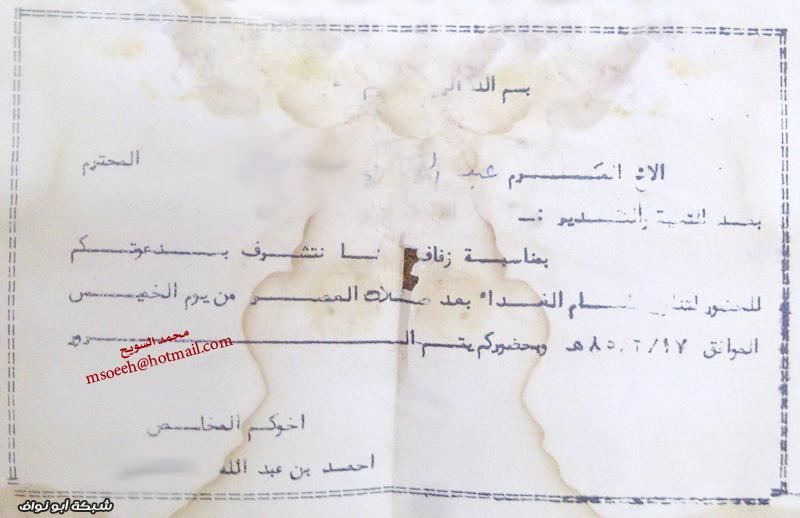 بسم الله
الاخ المكرم عبد المحترم
بعد التحية والتقدير :ـ
بمناسبة زفافنا نتشرف بدعوتكم
للحضور لتناول طعام الغداء بعد صلاة العصر من يوم الخميس
الموافق ٨٥/٢/١٧هـ وبحضوركم يتم السرور
محمد السويح
msoeeh@hotmail.com
اخوكم المخلص
احمد بن عبد الله
شبكة أبو نواف